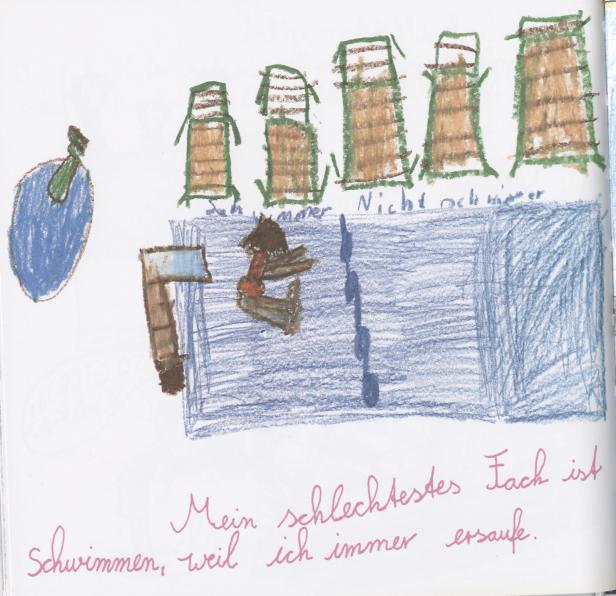 Schwimmer Nicht schwimer
Mein schlechtestes Fach ist
Schwimmen, weil ich immer ersaufe.